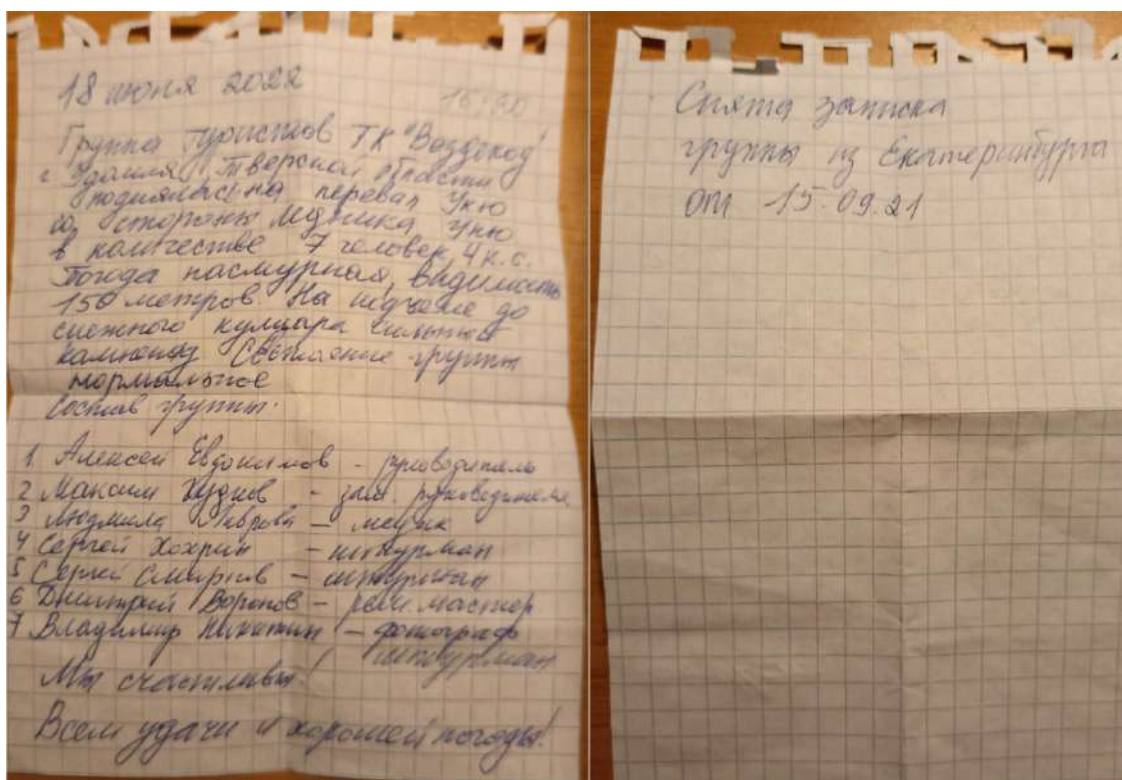 18 июня 2022 15:30
Группа туристов ТК "Вездеход"
г. Удомля Тверской области
поднялась на перевал Укю
со стороны ледника Укю
в количестве 7 человек 4 к.с.
Погода пасмурная видимость
150 метров. На подъеме до
снежного кулуара сильный
камнепад
группы
нормальное
Состав группы.
1. Алексей Евдокимов - руководитель
2 Максим - зам. руководителя
3 Людмила Лаврова - медик
4 Сергей Хохрин - штурман
5 Сергей Смирнов - штурман
6 Дмитрий Воронов - рем. мастер
7 Владимир Никитин - фотограф
штурман
Мы счастливы!
Всем удачи и хорошей погоды!
Снята записка
группы из Екатеринбурга
от 15.09.21